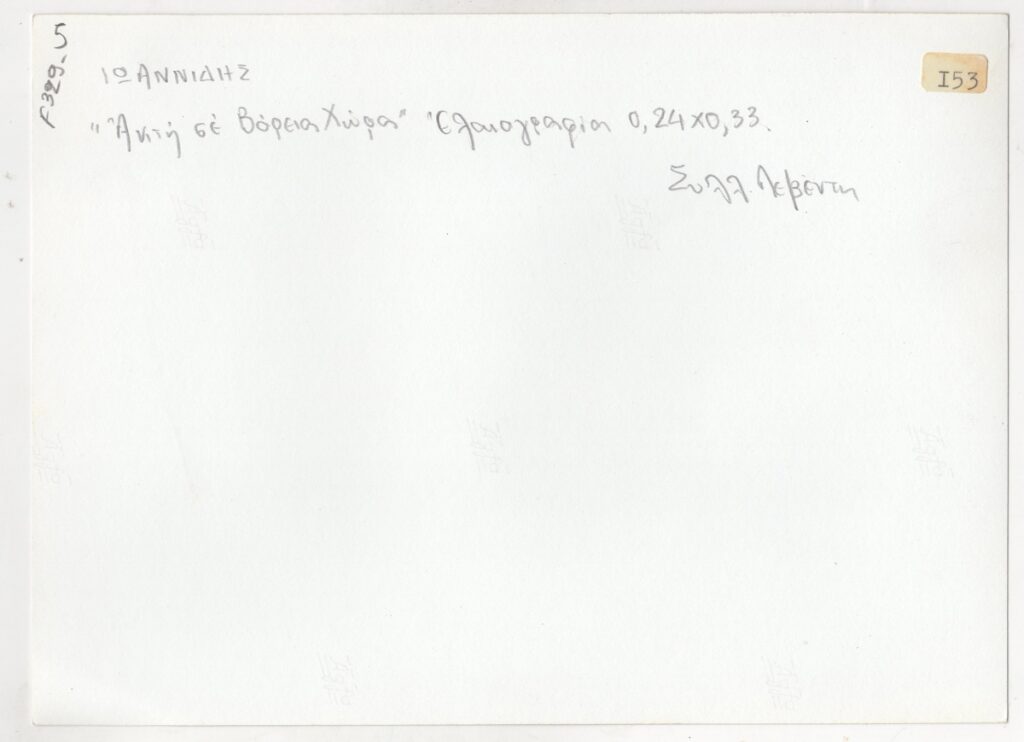 F329_5
ΙΩΑΝΝΙΔΗΣ
I53
"Ἀκτή σέ Βόρεια Χώρα" Ἐλαιογραφία 0,24x0,33.
Συλλ. Λεβέντη